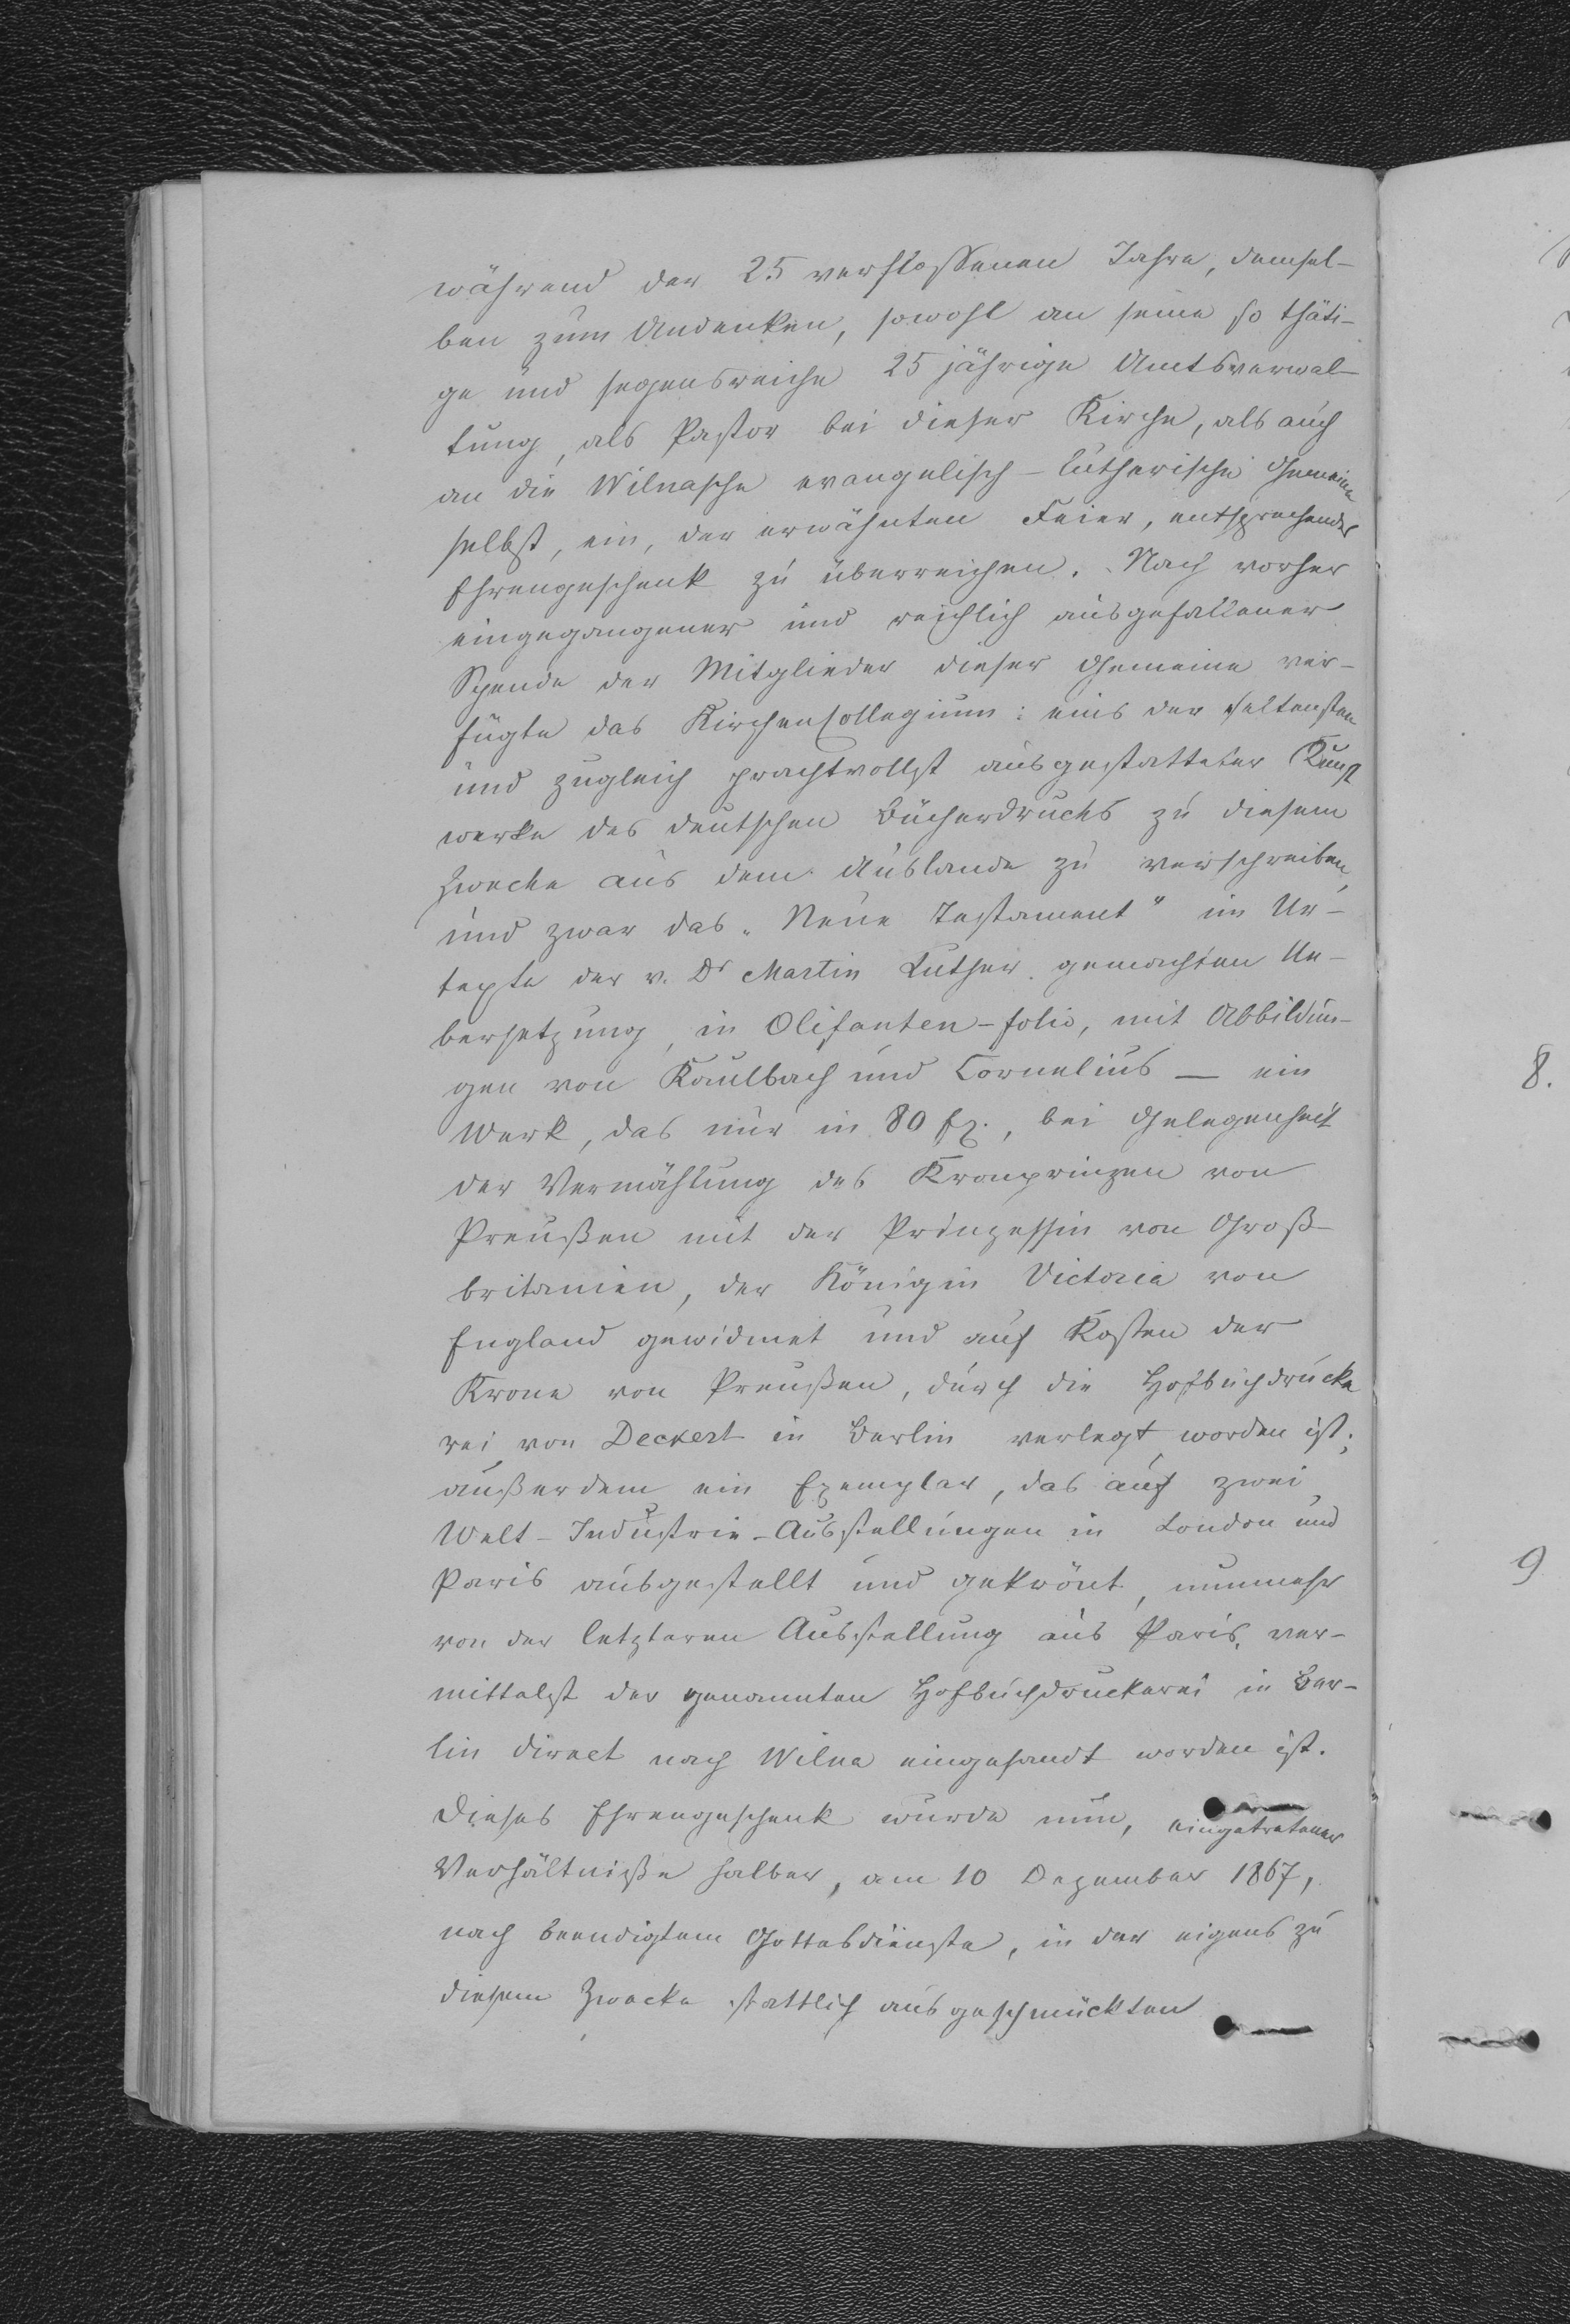 während der 25 verflossenen Jahre, demsel-
ben zum Andenken, sowohl an seine so thäti-
ge und segensreiche 25 jährige Amtsverwal-
tung, als Pastor bei dieser Kirche, als auch
an die Wilnasche evangelisch-lutherische Gemeine
selbst, ein, der erwähnten Feier, entsprechendes
Ehrengeschenk zu überreichen. Nach vorher
eingegangener und reichlich ausgefallener
Spende der Mitglieder dieser Gemeine ver-
fügte das Kirchencollegium: eins der seltensten
und zugleich prachtvollst ausgestatteter Kunst
werke des deutschen Bücherdrucks zu diesem
Zwecke aus dem Auslande zu verschreiben,
und zwar das "Neue Testament" im Ur-
texte der v. Dr Martin Luther gemachten Ue-
bersetzung, in Olifanten-folio, mit Abbildun-
gen von Kaulbach und Cornelius — ein
Werk, das nur in 80 Ex., bei Gelegenheit
der Vermählung des Kronprinzen von
Preußen mit der Prinzessin von Groß-
britanien, der Königin Victoria von
England gewidmet und auf Kosten der
Krone von Preußen, durch die Hofbuchdrucke
rei von Deckert in Berlin verlegt worden ist;
außerdem ein Exemplar, das auf zwei
Welt-Industrie-Ausstellungen in London und
Paris ausgestellt und gekrönt, nunmehr
von der letzteren Ausstellung aus Paris, ver-
mittelst der genannten Hofbuchdruckerei in Ber-
lin direct nach Wilna eingesandt worden ist.
Dieses Ehrengeschenk wurde nun, eingetretener
Verhältniße halber, am 10 Dezember 1867,
nach beendigtem Gottesdienste, in der eigens zu
diesem Zwecke stattlich ausgeschmückten
8.
9